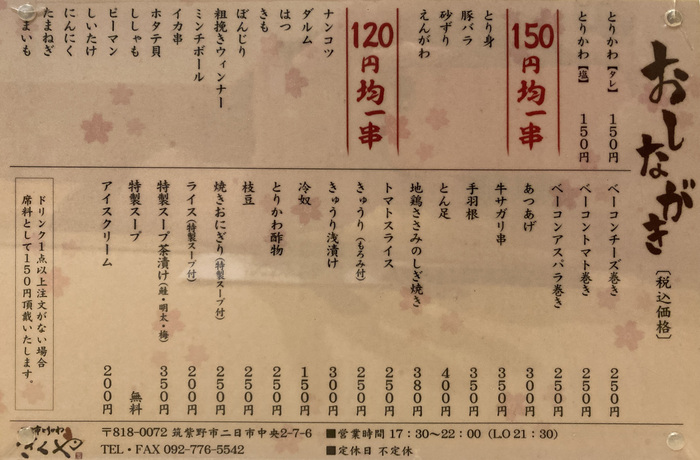 おしながき
〔税込価格〕
とりかわ【タレ】 150円
とりかわ【塩】 150円
150円均一串
とり身
豚バラ
砂ずり
えんがわ
120円均一串
ナンコツ
ダルム
はつ
きも
ぼんじり
粗挽きウィンナー
ミンチボール
イカ串
ホタテ貝
ししゃも
ピーマン
しいたけ
にんにく
たまねぎ
ベーコンチーズ巻き 250円
ベーコントマト巻き 250円
ベーコンアスパラ巻き 250円
あつあげ 300円
牛サガリ串 350円
手羽根 300円
とん足 400円
地鶏ささみのしぎ焼き 380円
トマトスライス 250円
きゅうり(もろみ付) 250円
きゅうり浅漬け 300円
冷奴 150円
とりかわ酢物 250円
枝豆 250円
焼きおにぎり(特製スープ付) 250円
ライス(特製スープ付) 200円
特製スープ茶漬け(鮭・明太・梅) 350円
特製スープ 無料
アイスクリーム 200円
ドリンク1点以上注文がない場合
席料として150円頂戴いたします。
〒818-0072 筑紫野市二日市中央2-7-6
TEL・FAX 092-776-5542
■営業時間 17:30〜22:00 (L.O 21:30)
■定休日 不定休